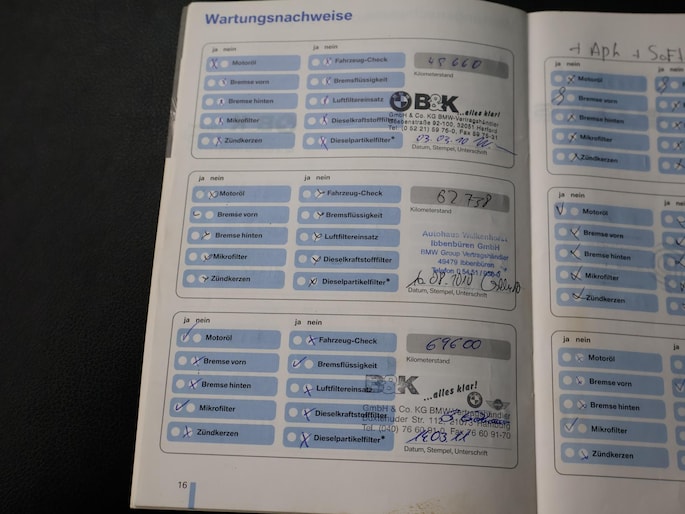 Wartungsnachweise
ja nein
ja nein
Motoröl
Fahrzeug-Check
45660
Bremse vorn
Bremsflüssigkeit
Kilometerstand
Bremse hinten
Luftfiltereinsatz
B&K ...alles klar!
GmbH & Co. KG BMW-Vertragshändler
Mikrofilter
Dieselkraftstofffilter
92-100, 32051 Herford
Tel. (0 52 21) 59 76-0, Fax 59 75-31
Zündkerzen
Dieselpartikelfilter*
03.03.10
Datum, Stempel, Unterschrift
ja nein
ja nein
Motoröl
Fahrzeug-Check
62738
Bremse vorn
Bremsflüssigkeit
Kilometerstand
Bremse hinten
Luftfiltereinsatz
Autohaus
Ibbenbüren GmbH
BMW Group Vertragshändler
Mikrofilter
Dieselkraftstofffilter
49479 Ibbenbüren
Telefon 0 54 51
Zündkerzen
Dieselpartikelfilter*
Datum, Stempel, Unterschrift
ja nein
ja nein
Motoröl
Fahrzeug-Check
69600
Bremse vorn
Bremsflüssigkeit
Kilometerstand
Bremse hinten
Luftfiltereinsatz
B&K ...alles klar!
GmbH & Co. KG BMW-Vertragshändler
Mikrofilter
Dieselkraftstofffilter
112, 21073 Hamburg
Tel. (040) 76 60 91-0, Fax 76 60 91-70
Zündkerzen
Dieselpartikelfilter*
Datum, Stempel, Unterschrift
16
ja nein
Motoröl
Bremse vorn
Bremse hinten
Mikrofilter
Zündkerzen
ja nein
Motoröl
Bremse vorn
Bremse hinten
Mikrofilter
Zündkerzen
ja nein
Motoröl
Bremse vorn
Bremse hinten
Mikrofilter
Zündkerzen